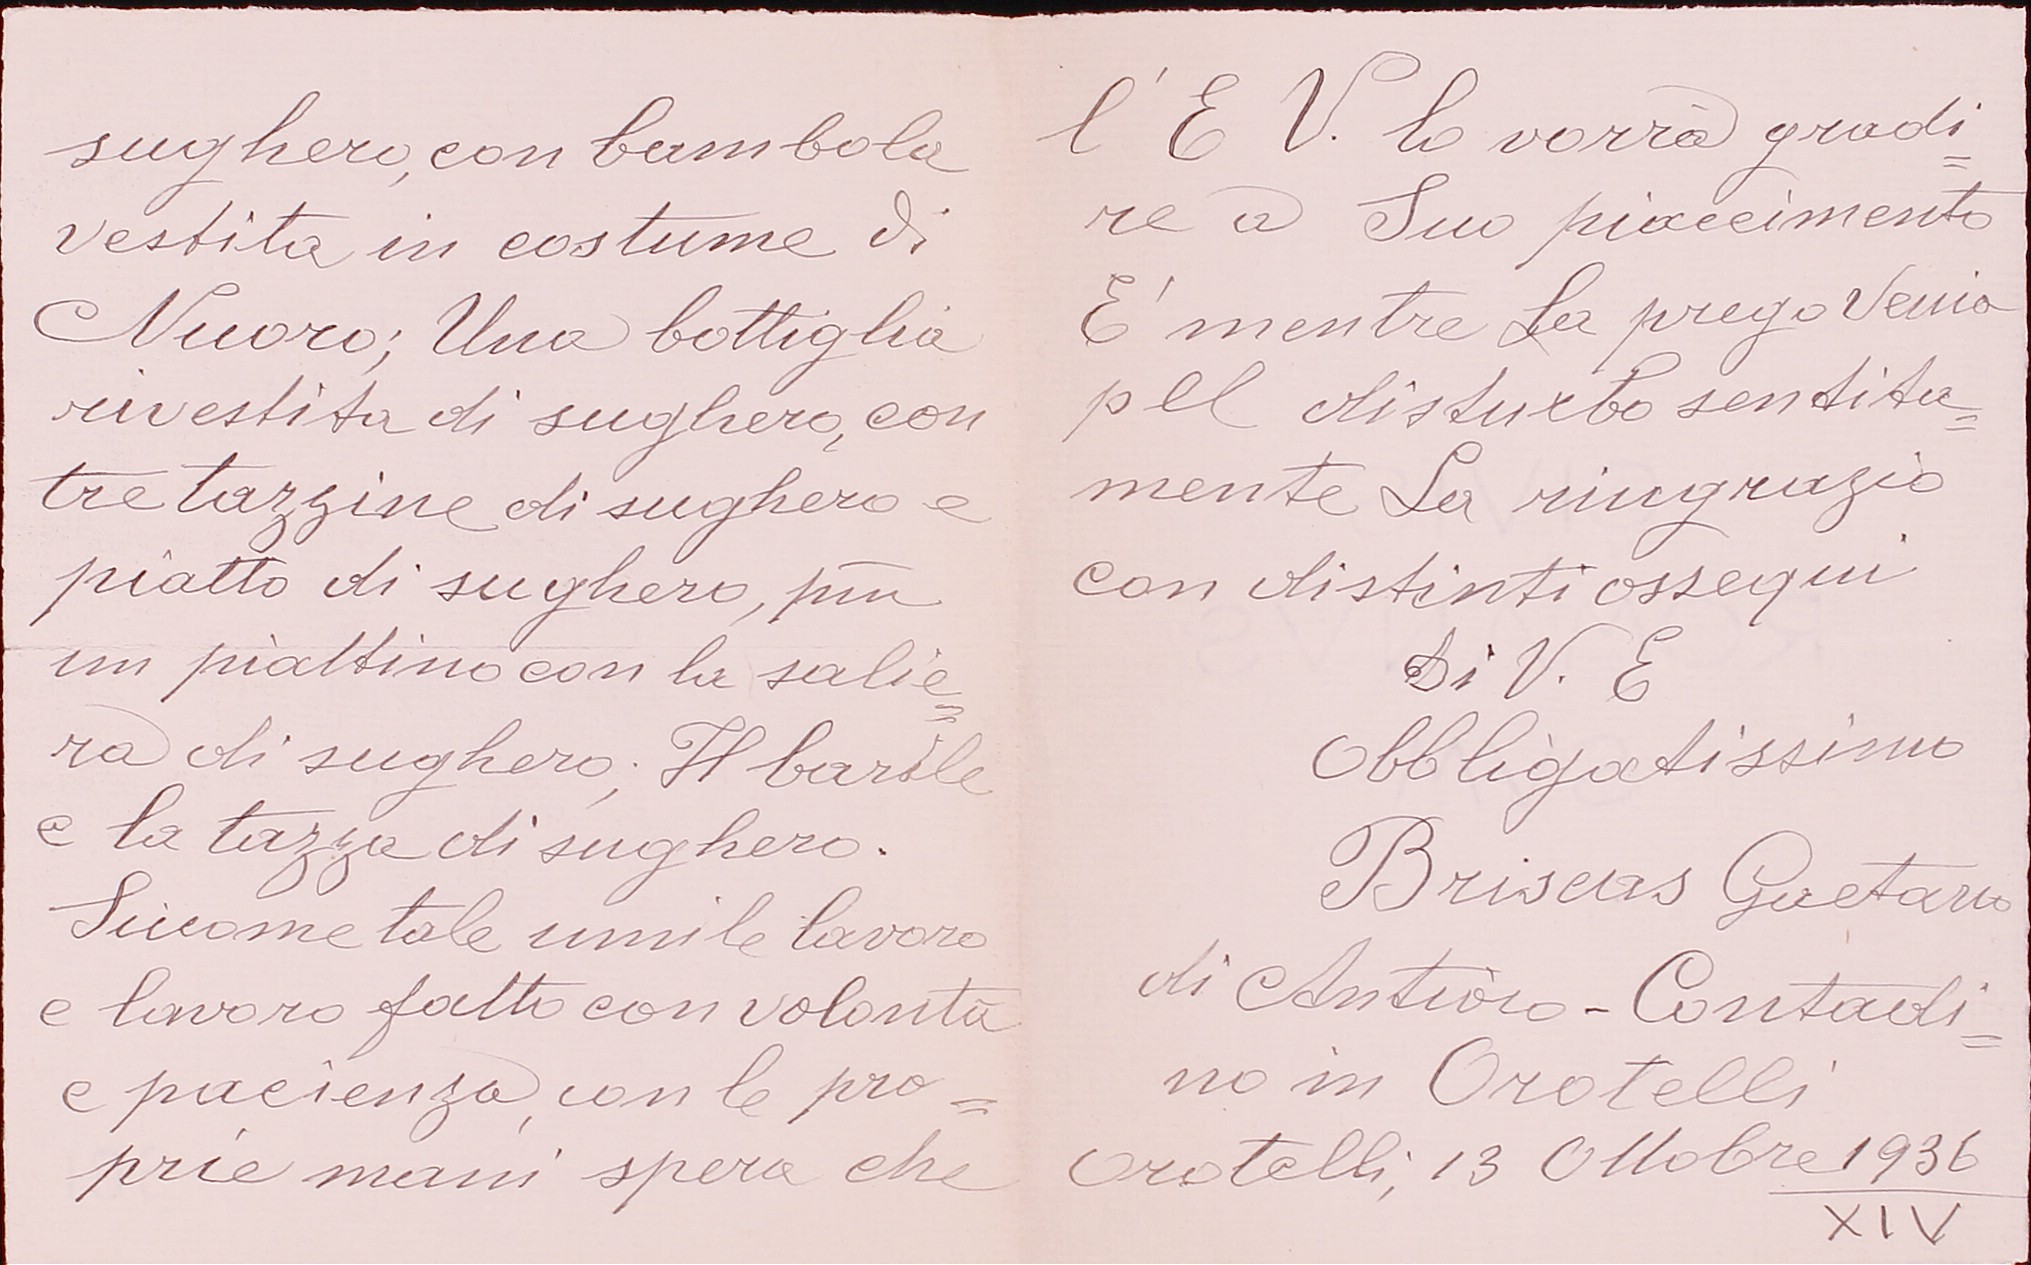 sughero, con bambola
vestita in costume di
Nuoro; Una bottiglia
rivestita di sughero, con
tre tazzine di sughero e
piatto di sughero, più
un piattino con la salie=
ra di sughero; Il barile
e la tazza di sughero.
Siccome tale umile lavoro
e lavoro fatto con volontà
e pacienza, con le pro=
prie mani spera che
l' E V. lo vorrà gradi=
re a Suo piaccimento
E' mentre La prego venia
pel disturbo sentita=
mente La ringrazio
con distinti ossequi
Di V. E
Obbligatissimo
Briscas Gaetano
di Antioro - Contadi=
no in Orotelli
Orotelli, 13 Ottobre 1936
XIV